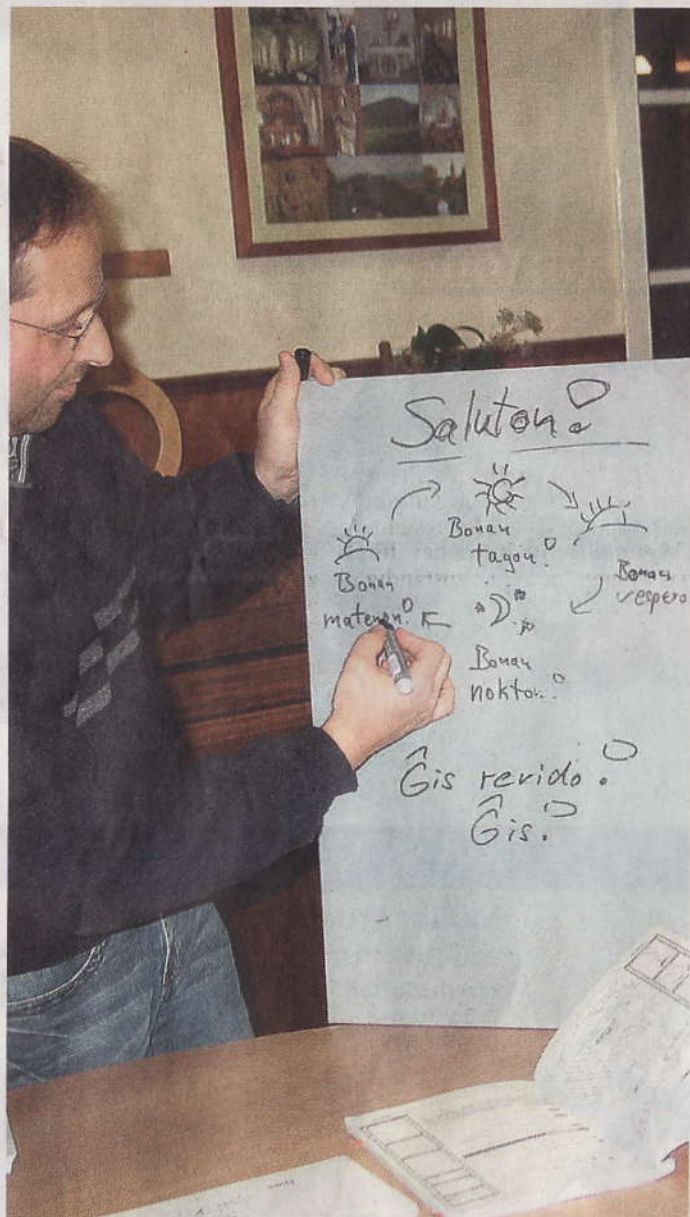 Saluton!
Bonan
tagon!
Bonan
matenon!
Bonan
vespero
Bonan
nokton!
Ĝis revido!
Ĝis!